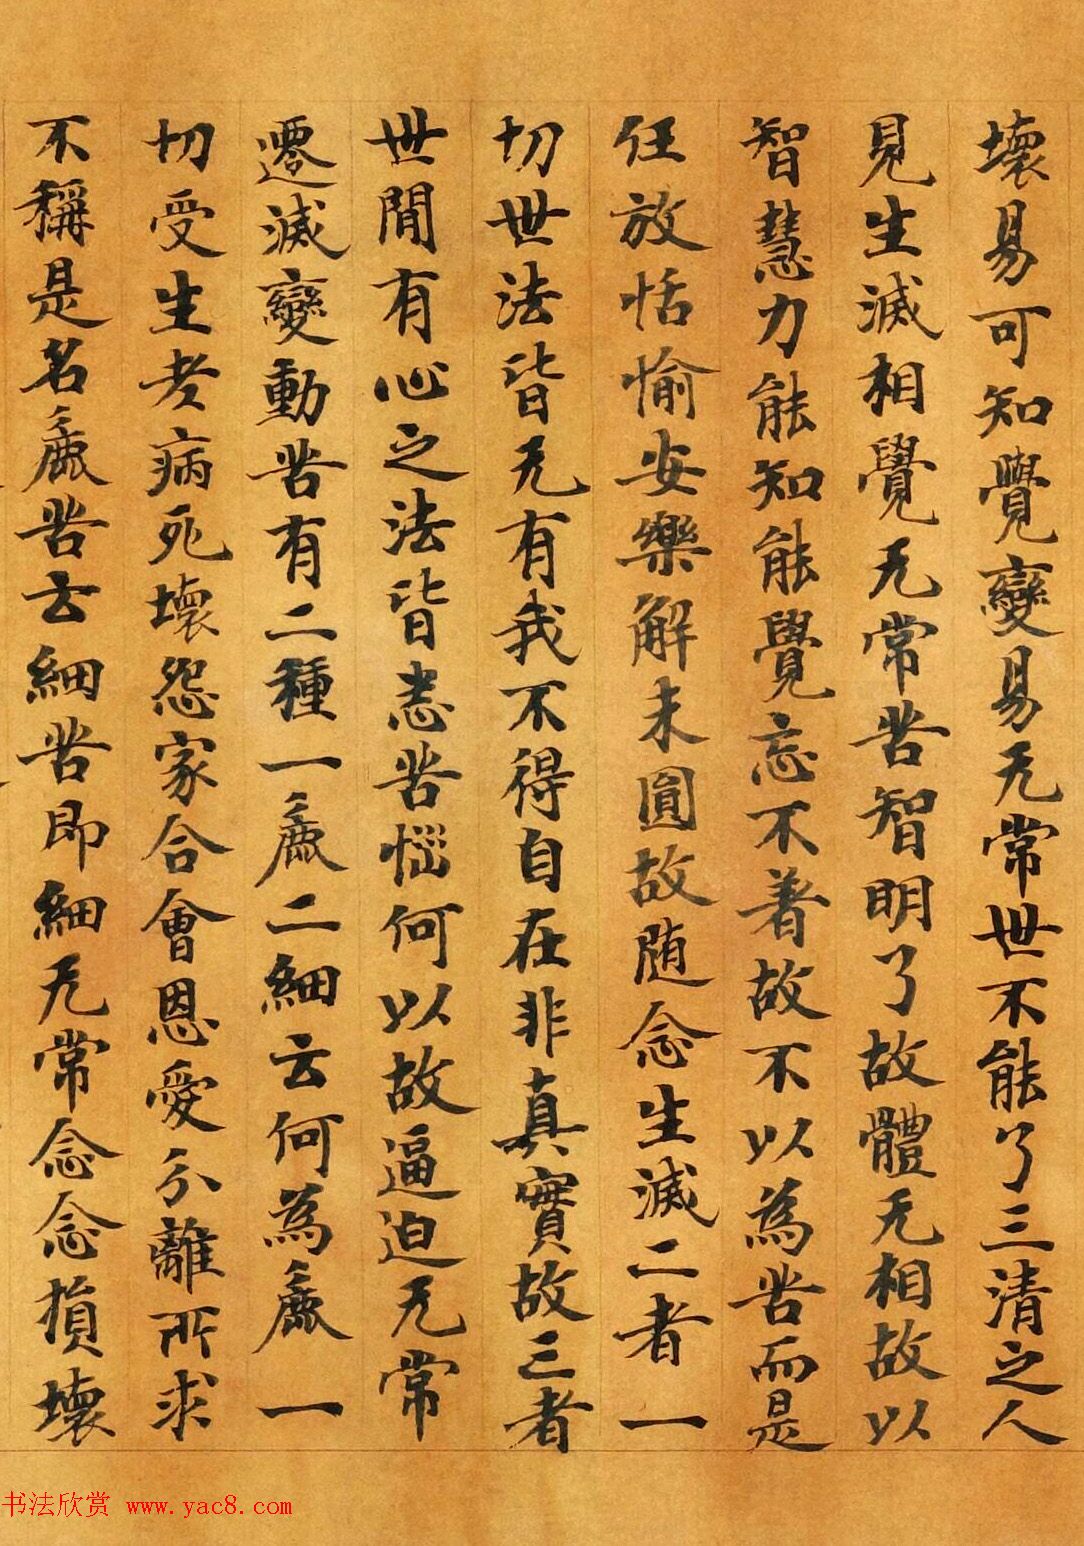 壞易可知覺變易无常世不能了三清之人
見生滅相覺无常苦智明了故體无相故以
智慧力能知能覺忘不著故不以為苦而是
任放恬愉安樂解未圓故随念生滅二者一
切世法皆无有我不得自在非真實故三者
世間有心之法皆悉苦惱何以故逼迫无常
遷滅變動苦有二種一麁二細云何為麁一
切受生老病死壞怨家合會恩愛分離所求
不稱是名麁苦云細苦即細无常念念損壞
书法欣赏 www.yac8.com